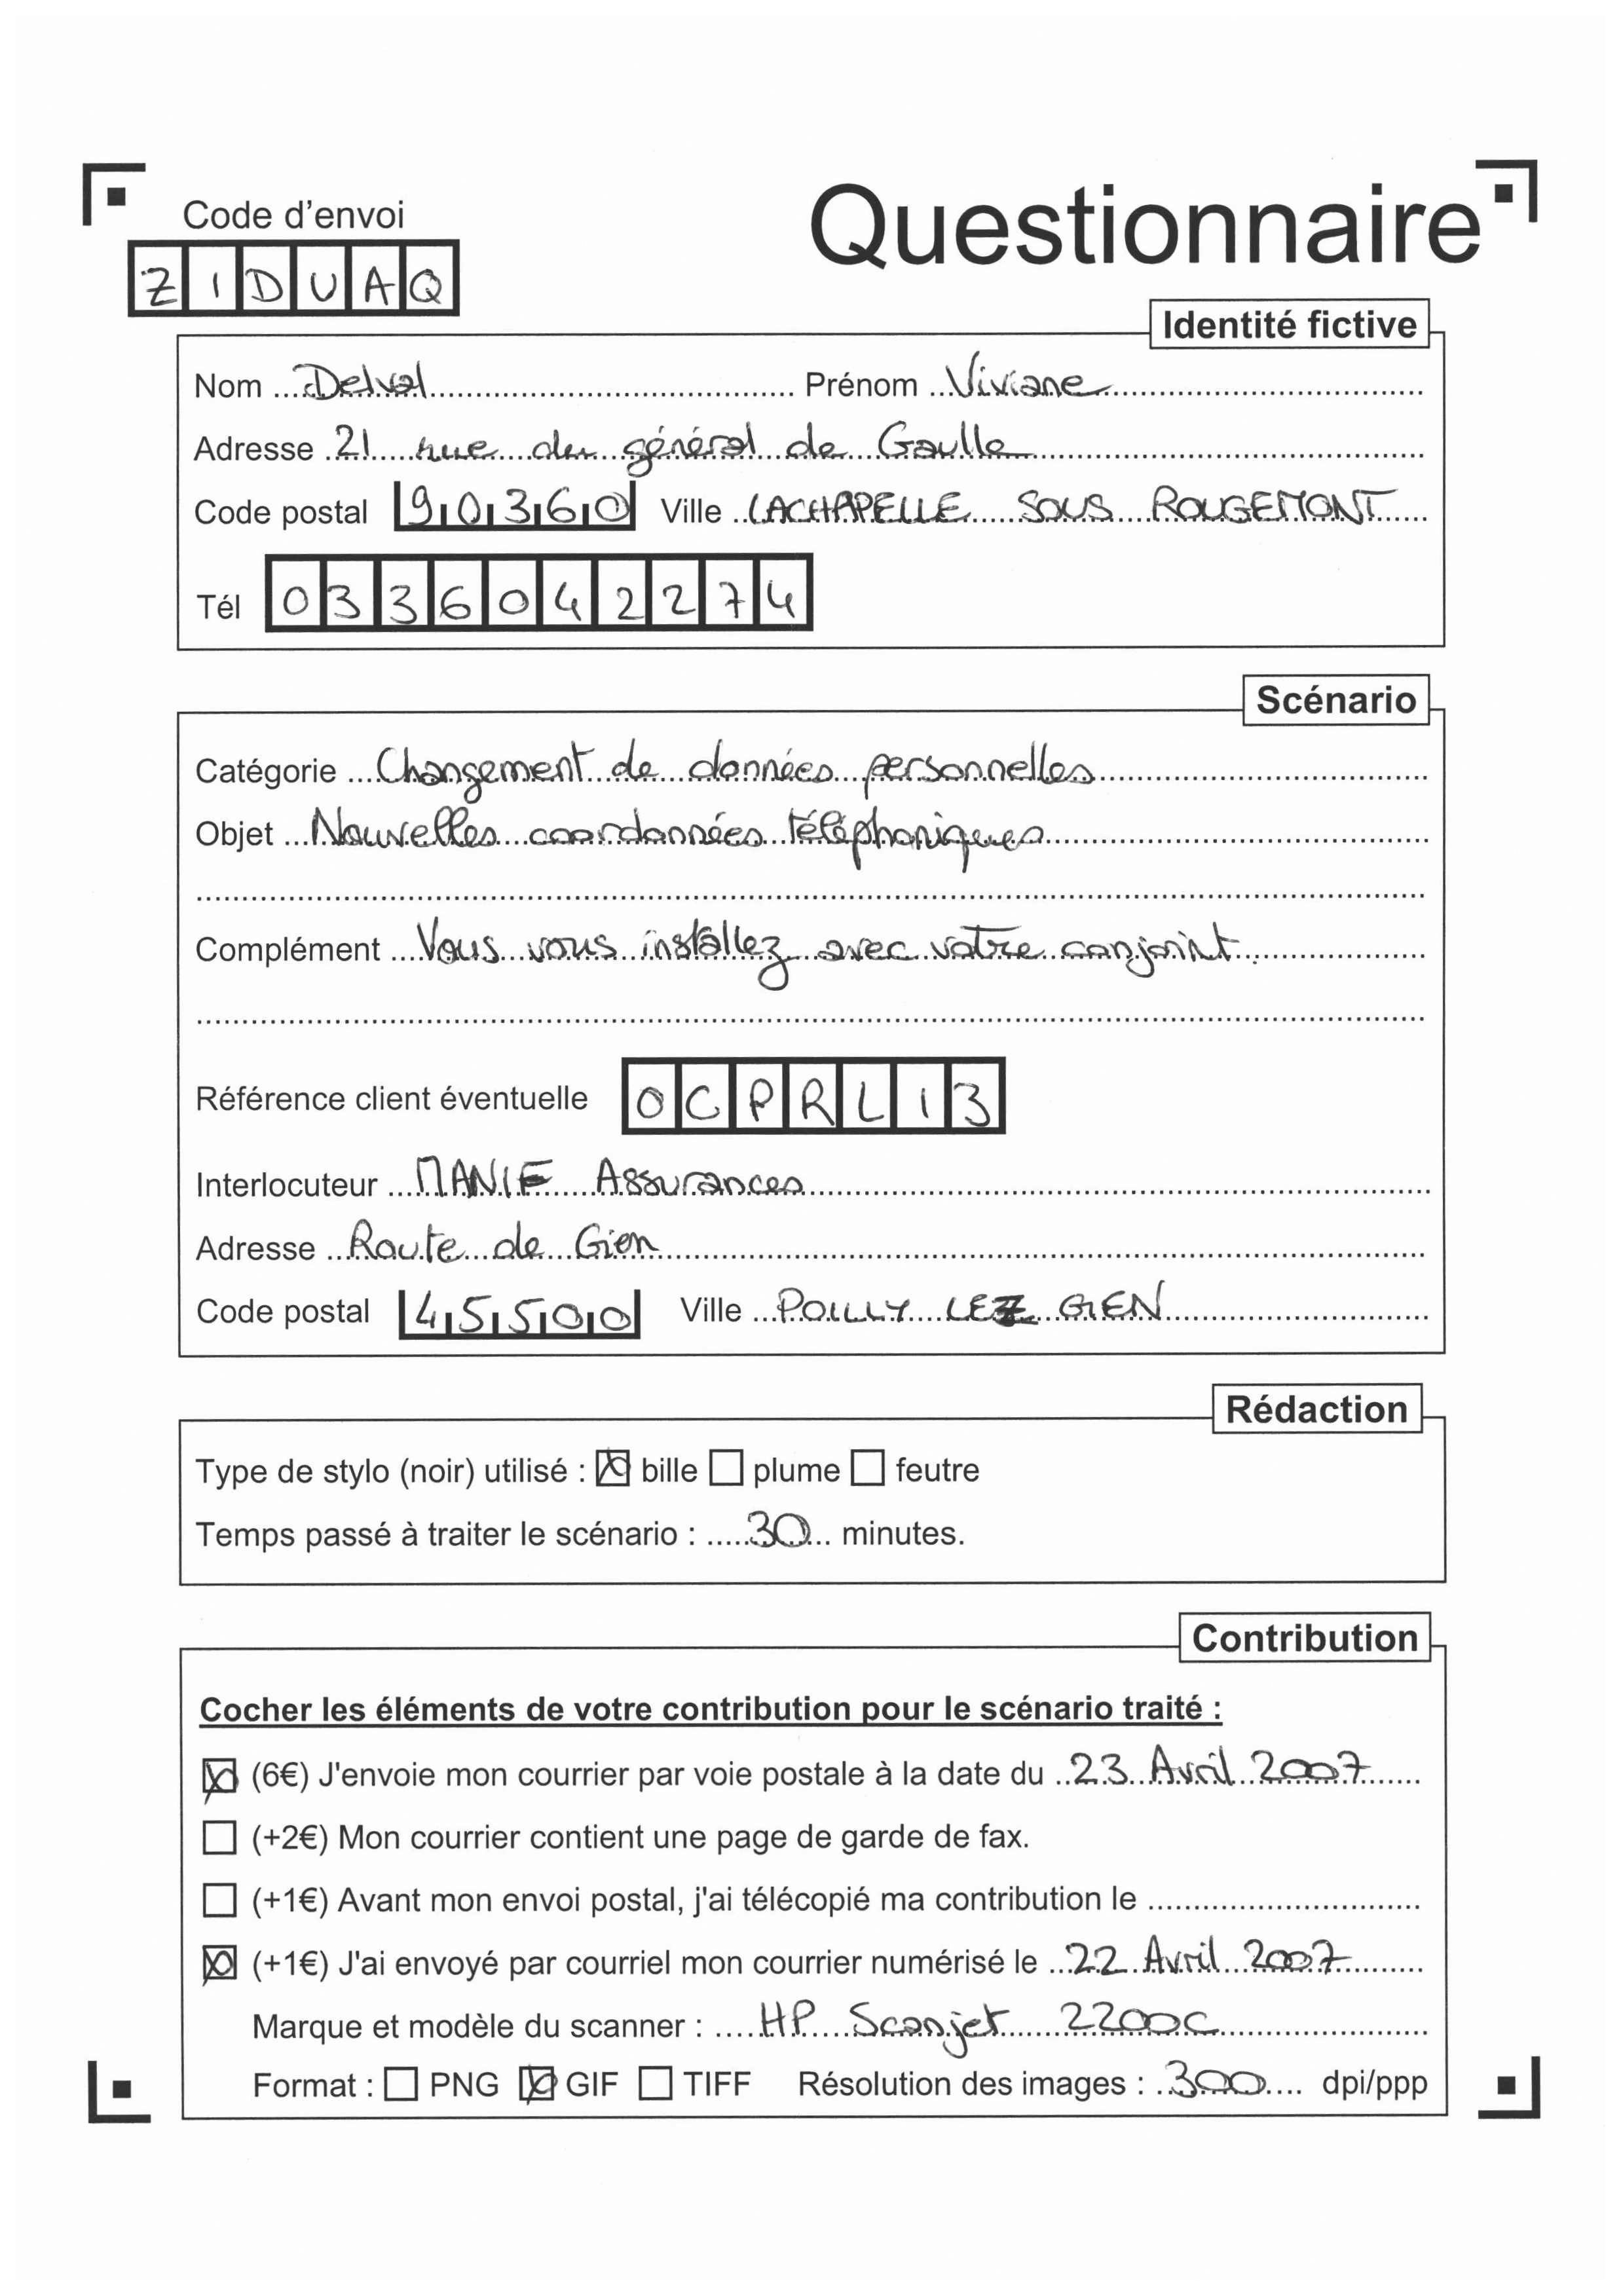 Code d'envoi
Questionnaire
ZIDUAQ
Identité fictive
Nom Delval Prénom Viviane
Adresse 21 rue du général de Gaulle
Code postal 90360 Ville LACHAPELLE SOUS ROUGEMONT
Tél 0336042274
Scénario
Catégorie Changement de données personnelles
Objet Nouvelles coordonnées téléphoniques
Complément Vous vous installez avec votre conjoint.
Référence client éventuelle OCPRL13
Interlocuteur MANIE Assurances
Adresse Route de Gien
Code postal 45500 Ville POILLY LEZ GIEN
Rédaction
Type de stylo (noir) utilisé : bille plume feutre
Temps passé à traiter le scénario : 30 minutes.
Contribution
Cocher les éléments de votre contribution pour le scénario traité :
(6€) J'envoie mon courrier par voie postale à la date du 23 Avril 2007
(+2€) Mon courrier contient une page de garde de fax.
(+1€) Avant mon envoi postal, j'ai télécopié ma contribution le
(+1€) J'ai envoyé par courriel mon courrier numérisé le 22 Avril 2007
Marque et modèle du scanner : HP Scanjet 2200C
Format : PNG GIF TIFF Résolution des images : 300 dpi/ppp